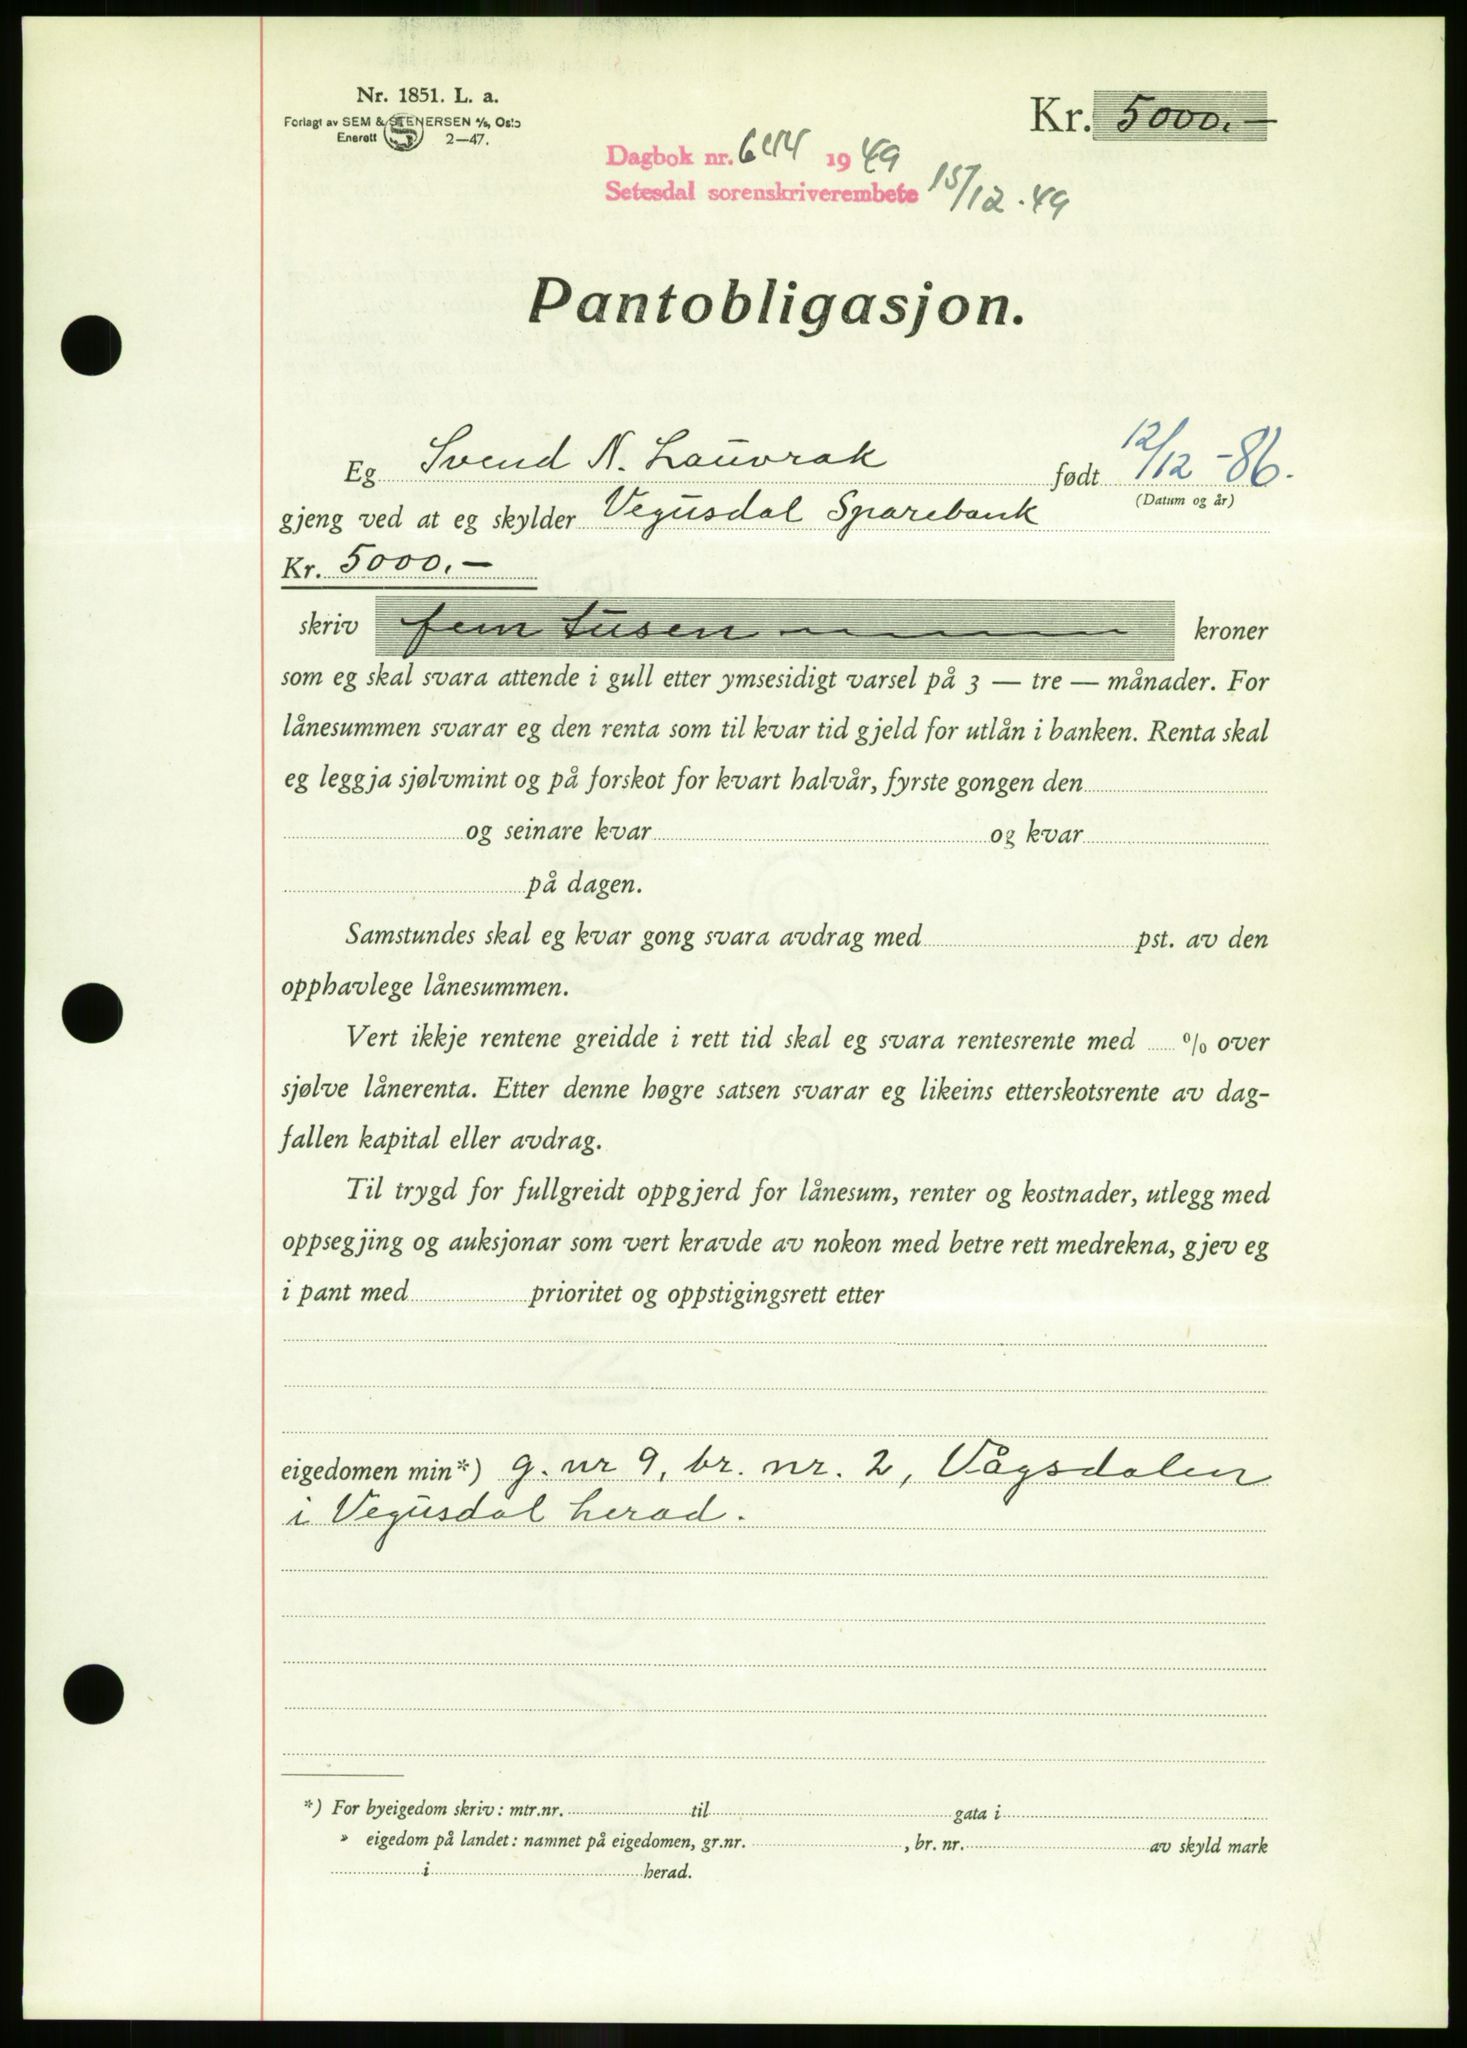 Nr. 1851. L. a.
Forlagt av SEM & STENERSEN A/S, Oslo
Enerett 2—47.
Kr. 5000.—
Dagbok nr. 644 1949
Setesdal sorenskriverembete 15/12.49
Pantobligasjon.
Eg Svend N. Lauvrak født 12/12 -86.
(Datum og år)
gjeng ved at eg skylder Vegusdal Sparebank
Kr. 5000.—
skriv fem tusen kroner
som eg skal svara attende i gull etter ymsesidigt varsel på 3 — tre — månader. For
lånesummen svarar eg den renta som til kvar tid gjeld for utlån i banken. Renta skal
eg leggja sjølvmint og på forskot for kvart halvår, fyrste gongen den
og seinare kvar og kvar
på dagen.
Samstundes skal eg kvar gong svara avdrag med pst. av den
opphavlege lånesummen.
Vert ikkje rentene greidde i rett tid skal eg svara rentesrente med % over
sjølve lånerenta. Etter denne høgre satsen svarar eg likeins etterskotsrente av dag-
fallen kapital eller avdrag.
Til trygd for fullgreidt oppgjerd for lånesum, renter og kostnader, utlegg med
oppsegjing og auksjonar som vert kravde av nokon med betre rett medrekna, gjev eg
i pant med prioritet og oppstigingsrett etter
eigedomen min*) g. nr 9, br. nr. 2, Vågsdalen
i Vegusdal herad.
*) For byeigedom skriv: mtr.nr. til gata i
» eigedom på landet: namnet på eigedomen, gr.nr. , br. nr. av skyld mark
i herad.